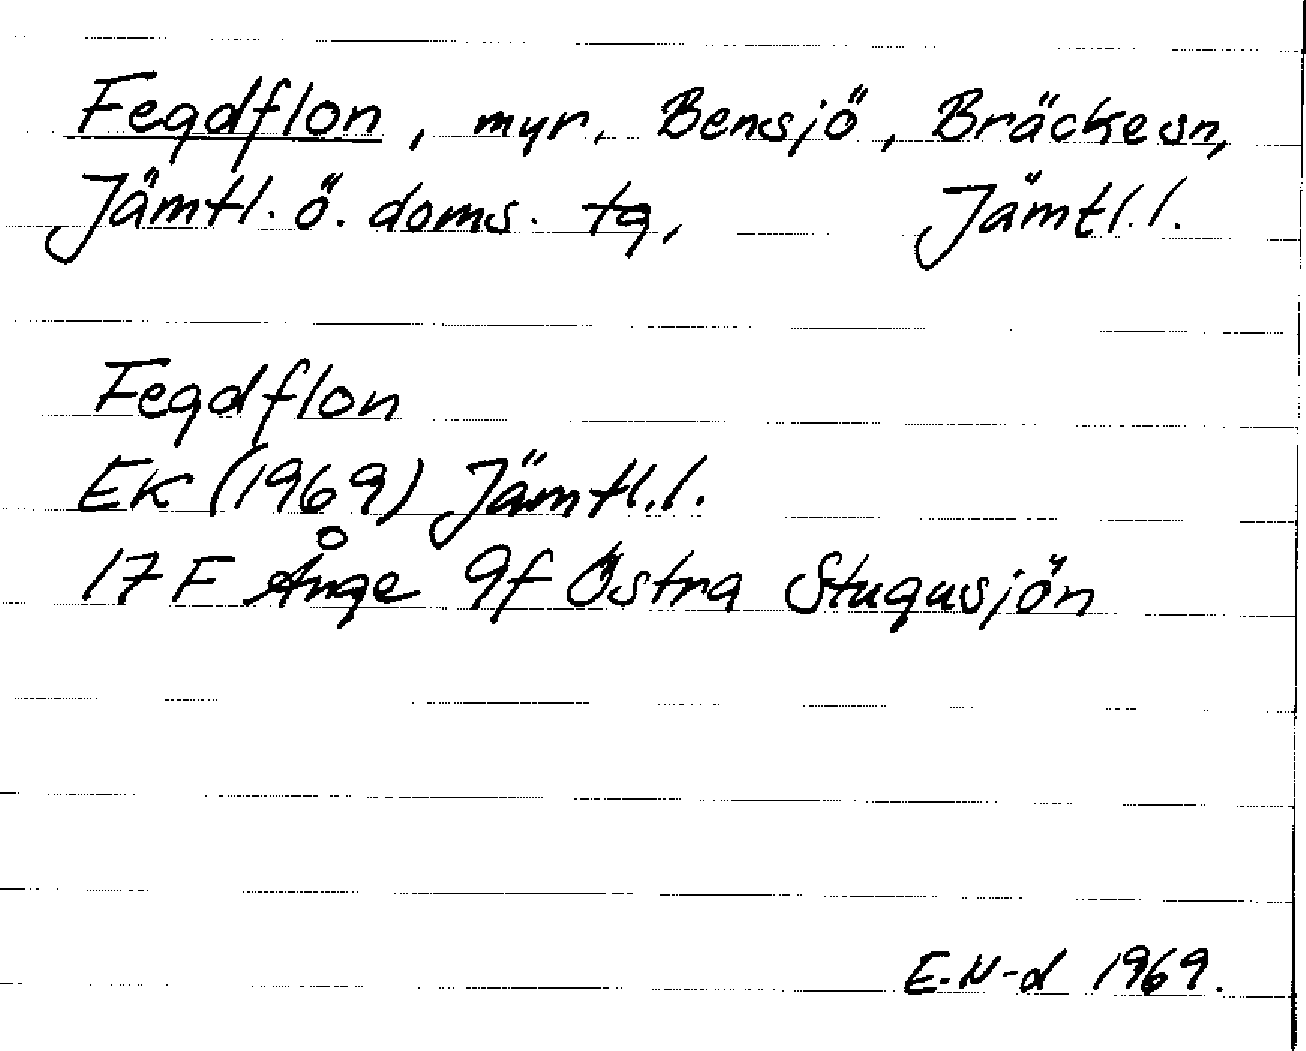 Fegdflon, myr, Bensjö, Bräcke sn,
Jämtl. ö. doms. tg, Jämtl.l.
Fegdflon
EK (1969) Jämtl.l.
17 F Ånge 9f Östra Stugusjön
E.N-d 1969.